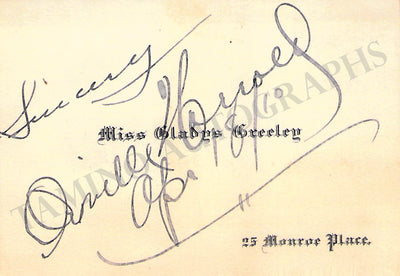 Sincerely
Orville Harrold
Miss Gladys Greeley
Apr
25 Monroe Place.
TAMINO AUTOGRAPHS